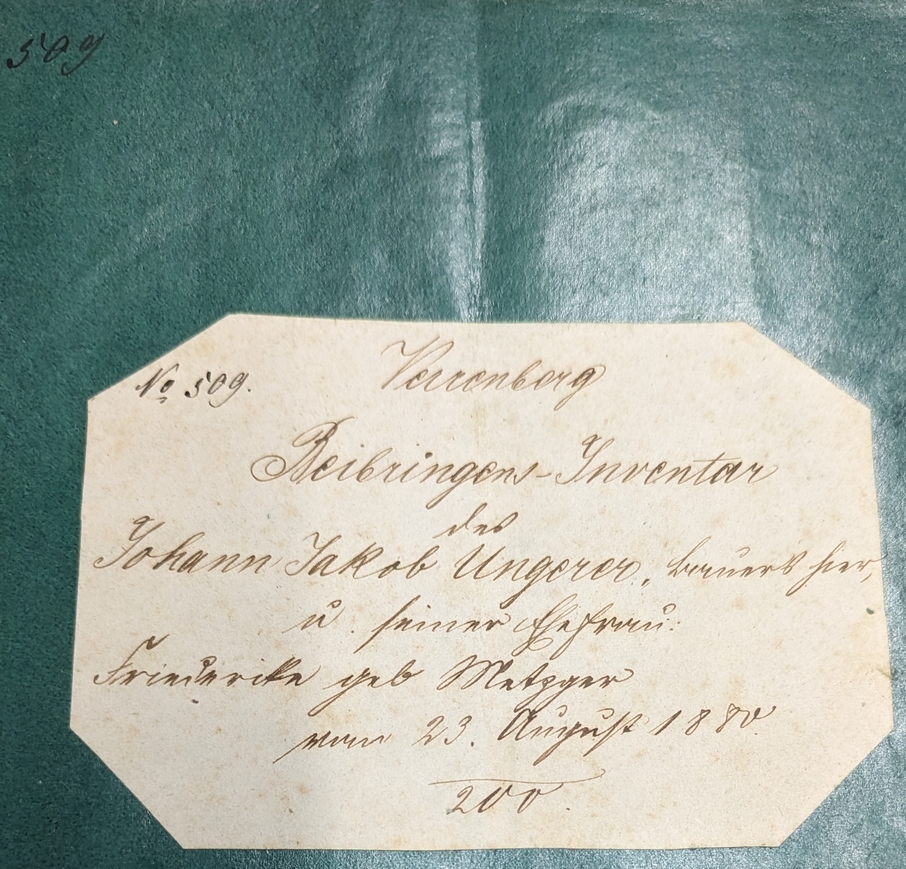 509
No 509.
Verrenberg
Beibringens-Inventar
des
Johann Jakob Ungerer, Bauers hier,
u. seiner Ehefrau:
Friederike geb Metzger
vom 23. August 1880
200.